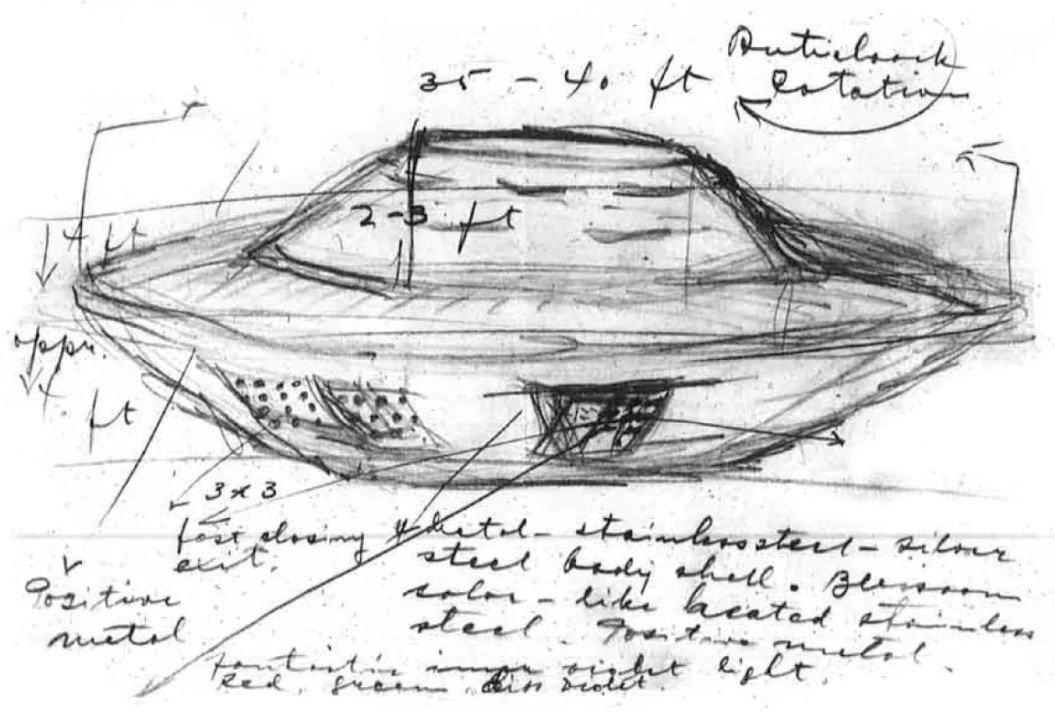 35 - 40 ft
Anticlock
Rotation
2-3 ft
4 ft
appr.
4. ft
3 x 3
fast closing
exit.
Positive
metal
Metal - stainless steel - silver
steel body shell.
color - like heated stainless
steel. Positive metal.
fantastic inner violet light.
Red, green, violet.